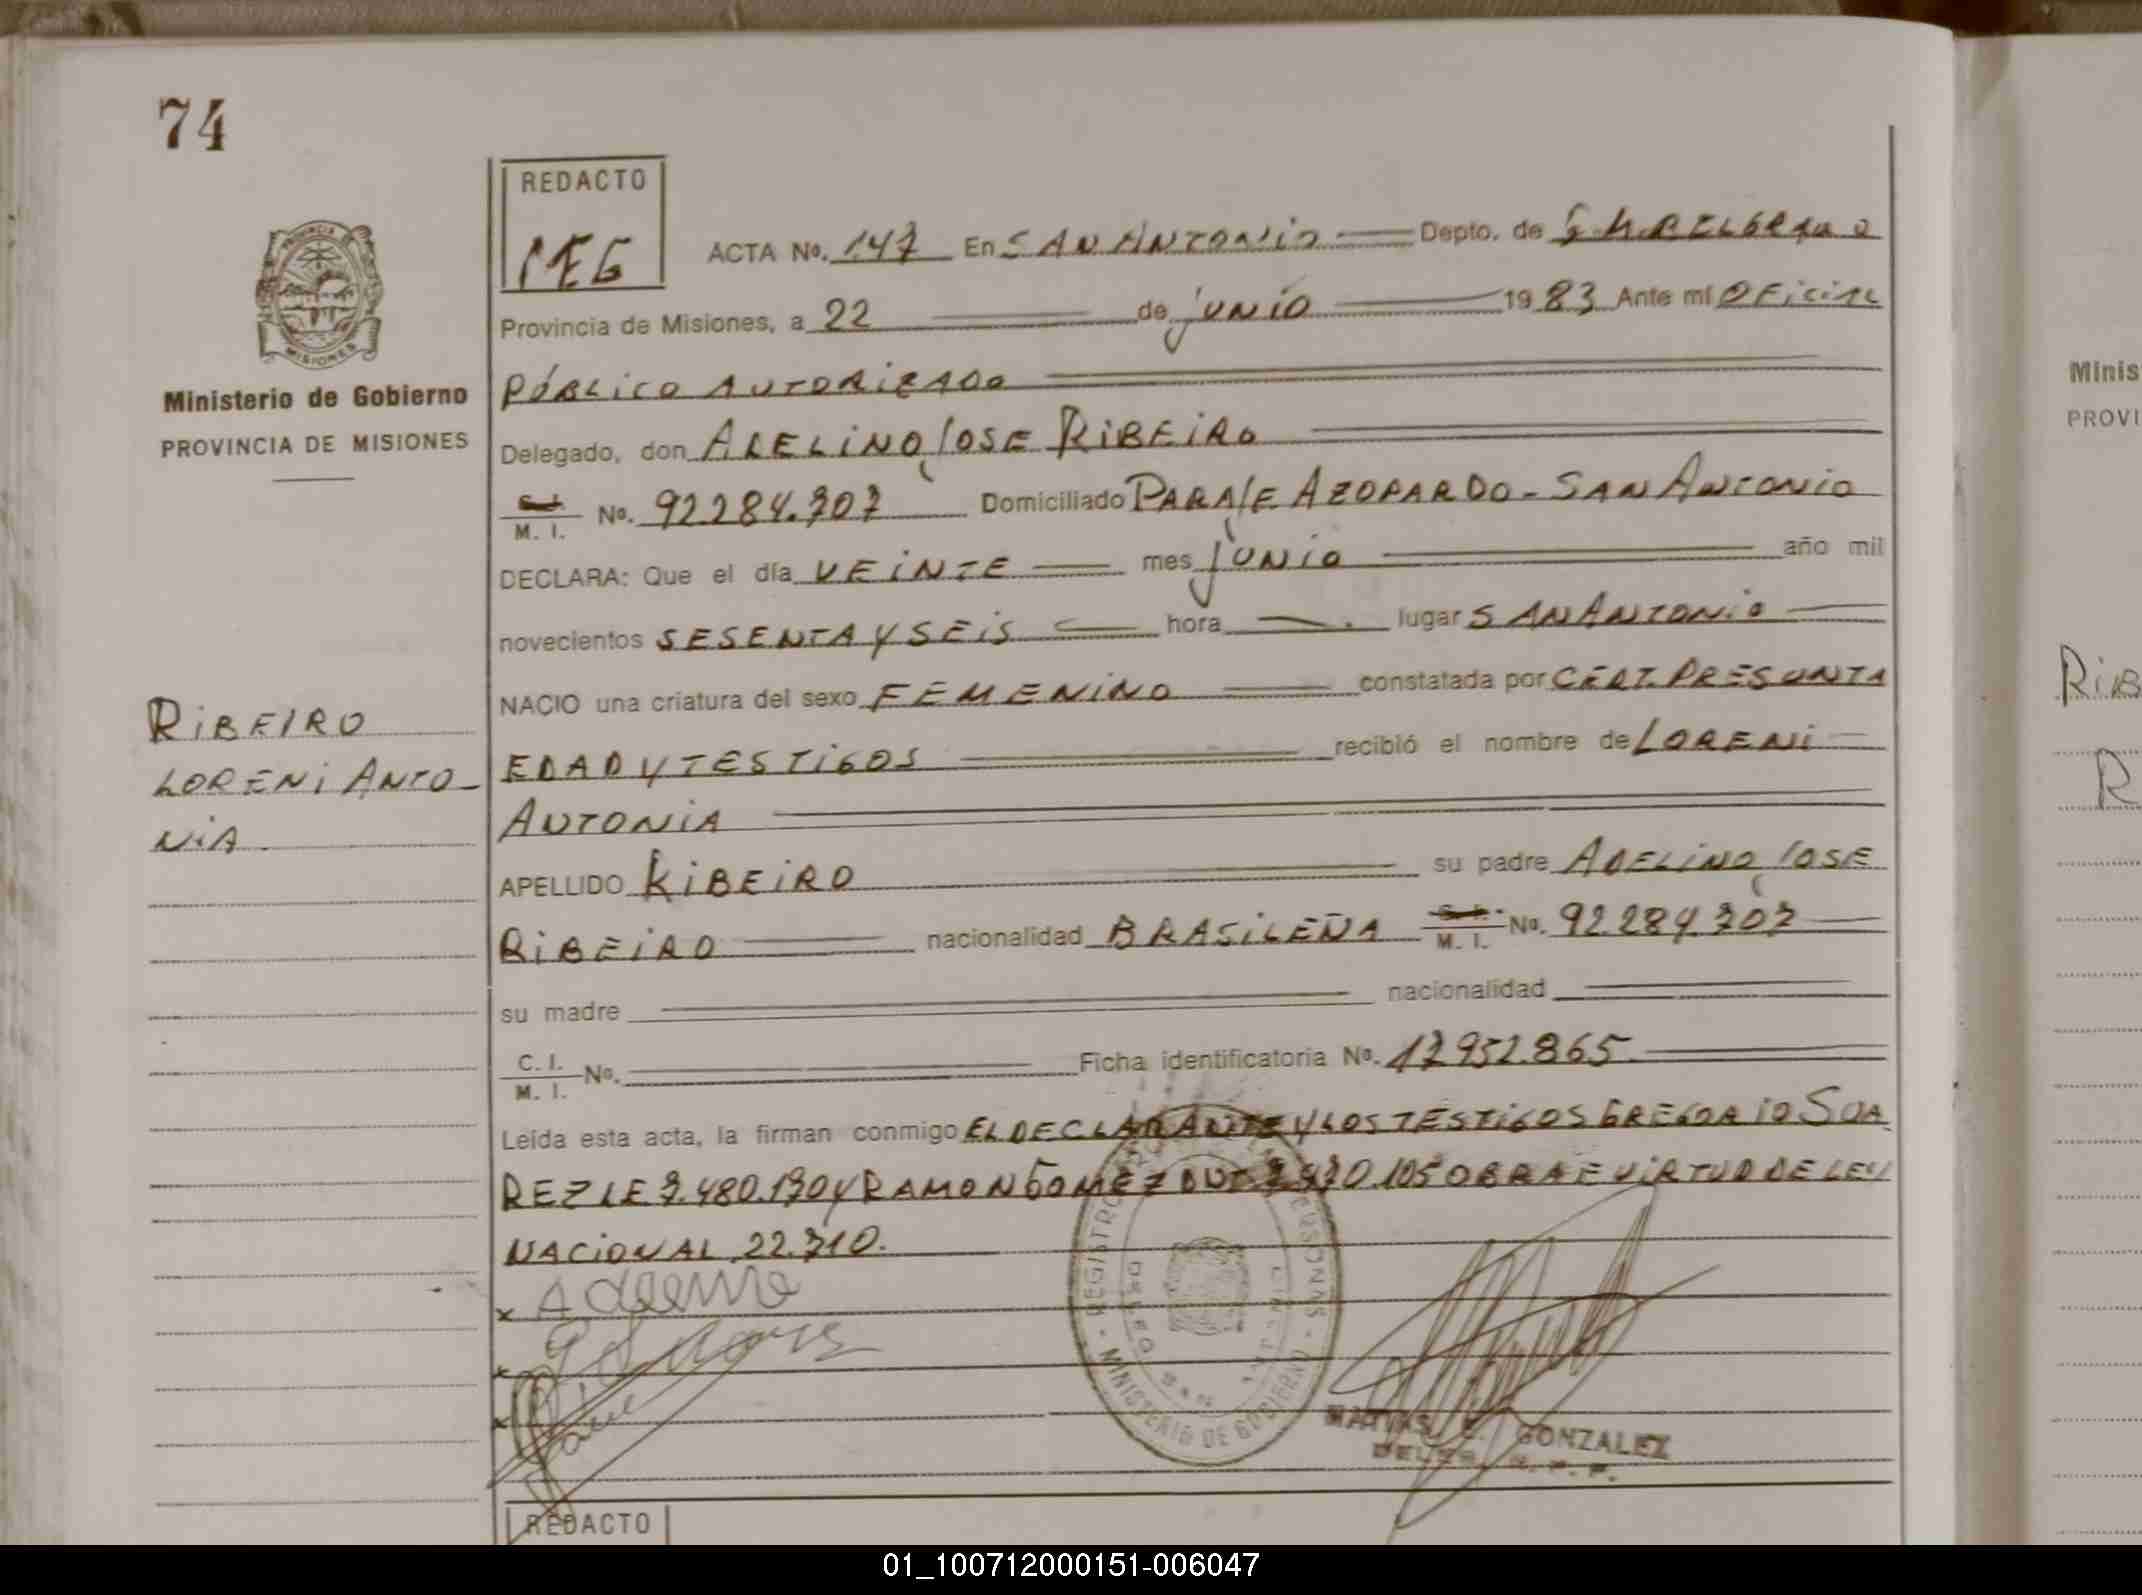 74
REDACTO
ACTA No. 147 En SAN ANTONIO Depto. de G.M.BELGRANO
Provincia de Misiones, a 22 de junio 1983 Ante mí OFICIAL
PÚBLICO AUTORIZADO
Delegado, don ADELINO JOSE RIBEIRO
M. I. No. 92284.707 Domiciliado PARAJE AZOPARDO - SAN ANTONIO
DECLARA: Que el día VEINTE mes junio año mil
novecientos SESENTA Y SEIS hora lugar SAN ANTONIO
NACIO una criatura del sexo FEMENINO constatada por CERT. PRESUNTA
EDAD Y TESTIGOS recibió el nombre de LORENI
ANTONIA
APELLIDO RIBEIRO su padre ADELINO JOSE
RIBEIRO nacionalidad BRASILEÑA M. I. No. 92.284.707
su madre nacionalidad
C. I.
M. I. No. Ficha identificatoria No. 17952.865
Leída esta acta, la firman conmigo EL DECLARANTE Y LOS TESTIGOS GREGORIO SUA
REZ LE 7.480.190 Y RAMON GOMEZ 105 OBRA E VIRTUD DE LEY
NACIONAL 22.710.
x
x
x
REGISTRO PERSONAS
MINISTERIO DE GOBIERNO
GONZALEZ
REDACTO
PROVINCIA
MISIONES
Ministerio de Gobierno
PROVINCIA DE MISIONES
RIBEIRO
LORENI ANTO-
NIA.
Minis
PROVI
RIB
R
01_100712000151-006047